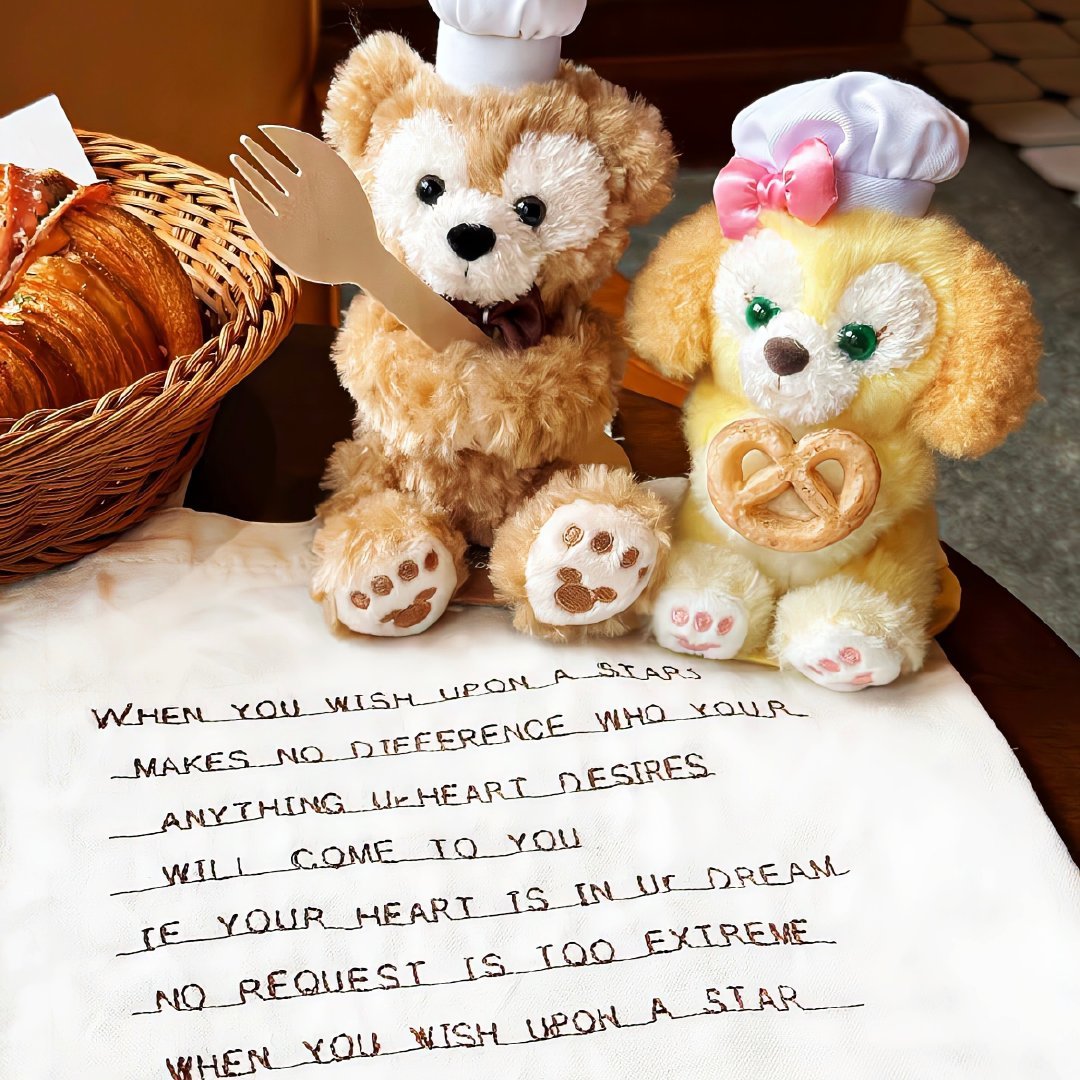 WHEN YOU WISH UPON A STARS
MAKES NO DIFEERENCE WHO YOUR
ANYTHING Ur HEART DESIRES
WILL COME TO YOU
IF YOUR HEART IS IN Ur DREAM
NO REQUEST IS TOO EXTREME
WHEN YOU WISH UPON A STAR